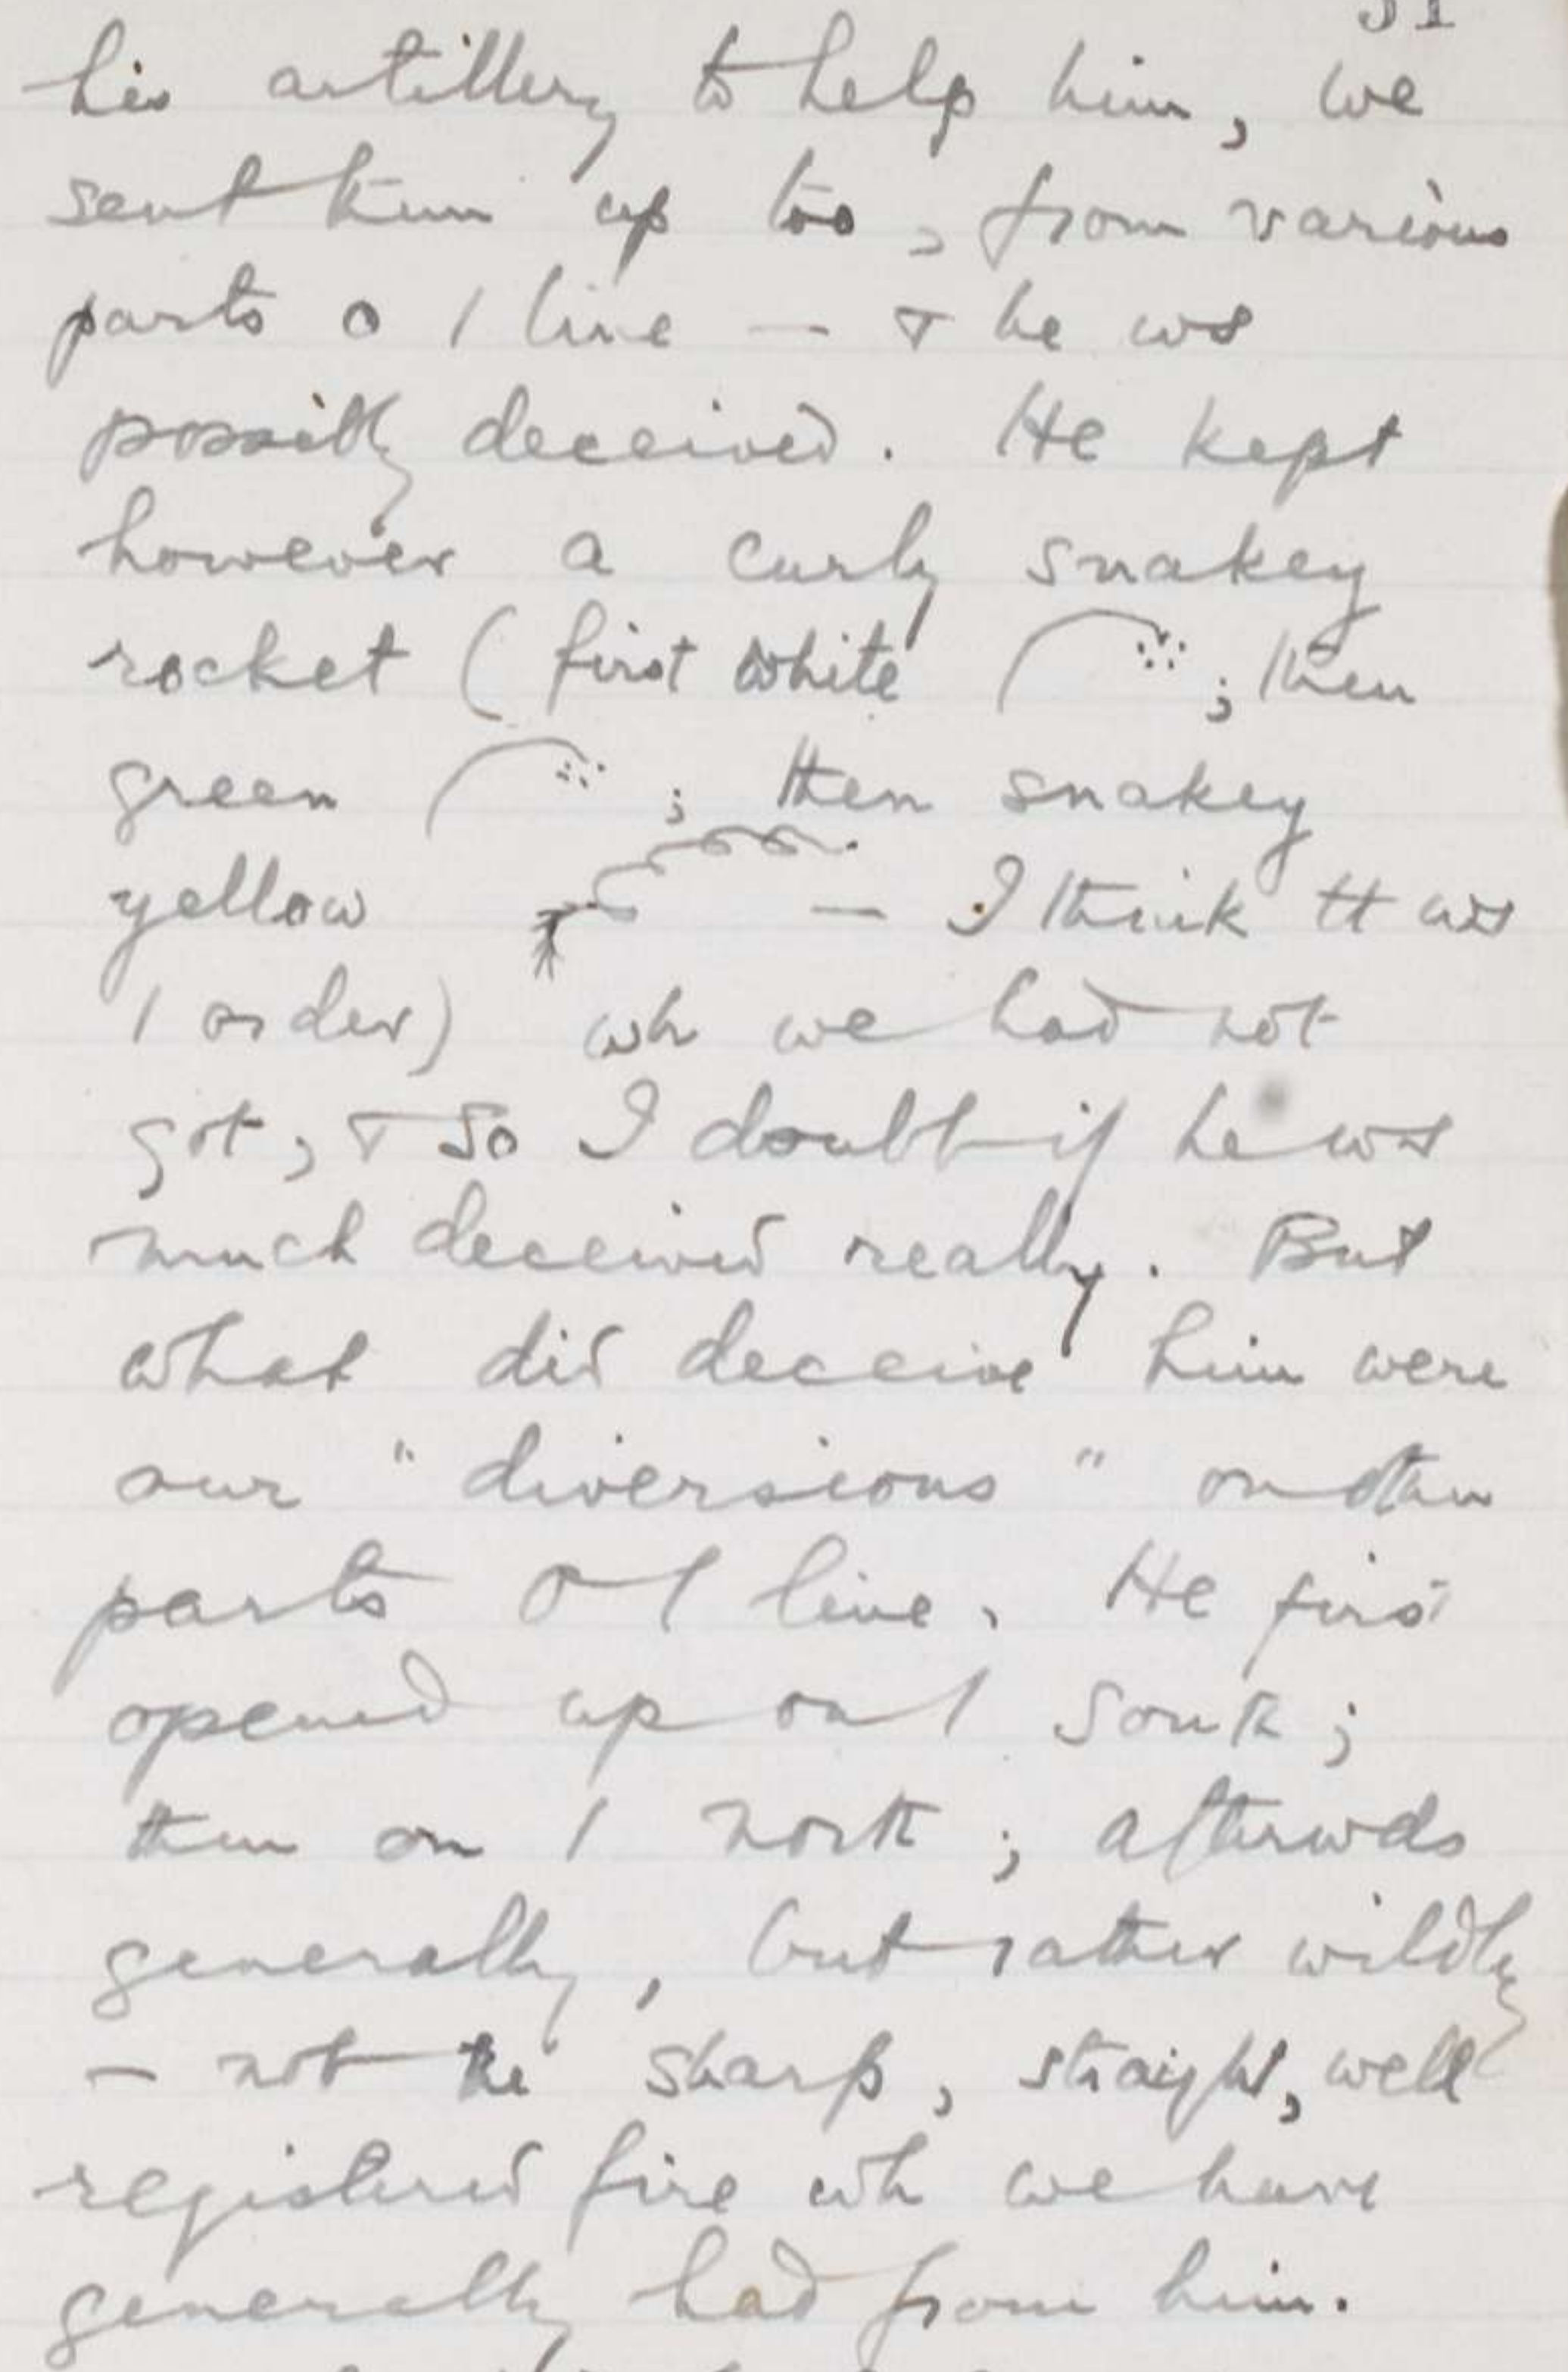 his artillery to help him, we
sent them up too, from various
parts o / line — & he ws
possibly deceived. He kept
however a curly snakey
rocket (first white ; then
green ; then snakey
yellow — I think tt ws
/ order) wh we had not
got, & so I doubt if he ws
much deceived really. But
what did deceive him were
our "diversions" on other
parts o / line. He first
opened up on / South;
then on / north; afterwds
generally, but rather wildly
— not the sharp, straight, well
registered fire wh we have
generally had from him.